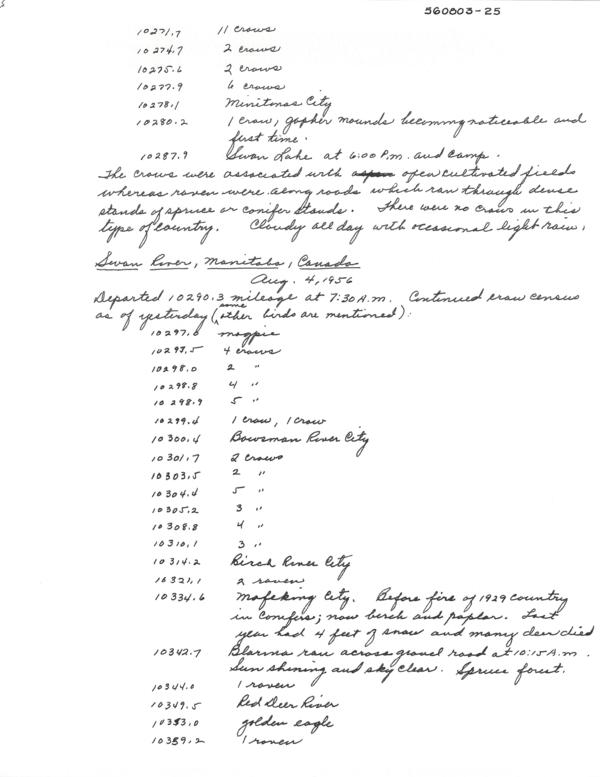 560803-25
10271.7 11 crows
10274.7 2 crows
10275.6 2 crows
10277.9 6 crows
10278.1 Minitonas City
10280.2 1 crow, gopher mounds becoming noticeable and
first time.
10287.9 Swan Lake at 6:00 P.m. and camp.
The crows were associated with open cultivated fields
whereas raven were along roads which ran through dense
stands of spruce or conifer stands. There were no crows in this
type of country. Cloudy all day with occasional light rain.
Swan River, Manitoba, Canada
Aug. 4, 1956
Departed 10290.3 mileage at 7:30 A.m. Continued crow census
as of yesterday (some other birds are mentioned):
10297.0 magpie
10297.5 4 crows
10298.0 2 "
10298.8 4 "
10298.9 5 "
10299.4 1 crow, 1 crow
10300.4 Bowsman River City
10301.7 2 crows
10303.5 2 "
10304.4 5 "
10305.2 3 "
10308.8 4 "
10310.1 3 "
10314.2 Birch River City
10321.1 2 raven
10334.6 Mafeking City. Before fire of 1929 country
in conifers; now birch and poplar. Last
year had 4 feet of snow and many deer died
10342.7 Blarina ran across gravel road at 10:15 A.m.
Sun shining and sky clear. Spruce forest.
10344.0 1 raven
10349.5 Red Deer River
10353.0 golden eagle
10359.2 1 raven